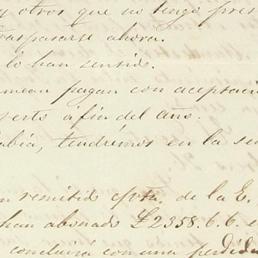 y otros que no tengo pres
traspasarse ahora.
lo han sentido.
pagan con aceptació
a fin del año.
abía, tendremos en la se
n remitido de la E.
han abonado £2358.6.6. e
concluirá con una perdida